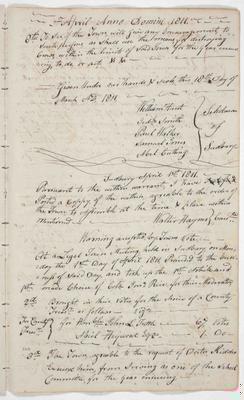 of April Anno Domini 1811.
9th To See if the Town will give any Encouragement to
Such persons as Shall be the means of destroying
Crows within the limits of Said Town for the year ensu-
ing to do or act &c &c
Given Under our Hands & Seals this 10th Day of
March AD. 1811.
William Hunt
Jedh Smith
Paul Walker
Samuel Jones
Abel Cutting
Selectmen
of
Sudbury
Sudbury April 1st 1811.
Pursuant to the within warrant, I have
Posted a Copy of the within agreeable to the vote of
the Town to assemble at the time & place within
Mentioned.
Walter Haynes Constbe
Warning accepted by Town Vote.
At a legal Town Meeting held in Sudbury on Mon-
day the 1st Day of April 1811 Proceed to the busi-
ness of Said Day, and took up the 1st Article and
1st made Choice of Colo Jonn Rice for their Moderator
2nd Brought in their votes for the choice of a County
Treasr as follows
For County
Treasr
for Honble John L. Tuttle 67 votes
Abel Heywood Esqr
3d The Town agreeable to the request of Doctor Kidder
Excuse him, from Serving as one of the School
Committee for the year ensuing